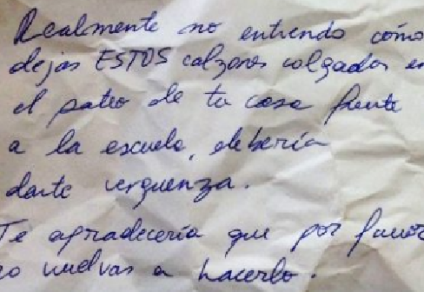 Realmente no entiendo cómo
dejas ESTOS calzones colgados en
el patio de tu casa frente
a la escuela, debería
darte verguenza.
Te agradecería que por favor
no vuelvas a hacerlo.